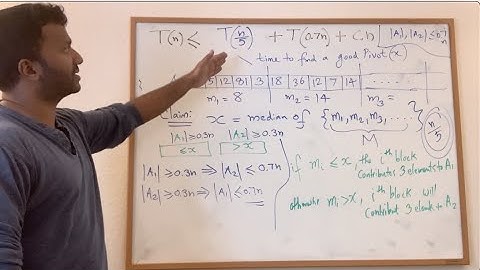 T(n) ≤ T(n/5) + T(0.7n) + C.n |A₁|, |A₂| ≤ 0.7n
time to find a good Pivot (x)
5 12 81 3 18 36 12 7 14 ......
m₁ = 8 m₂ = 14 m₃ =
Claim: x = median of {m₁, m₂, m₃, ....}
|A₁| ≥ 0.3n |A₂| ≥ 0.3n M n/5
≤ x > x
|A₁| ≥ 0.3n ⟹ |A₂| ≤ 0.7n
|A₂| ≥ 0.3n ⟹ |A₁| ≤ 0.7n
if mᵢ ≤ x the iᵗʰ block
contributes 3 elements to A₁
otherwise mᵢ > x, iᵗʰ block will
contribut 3 elements to A₂